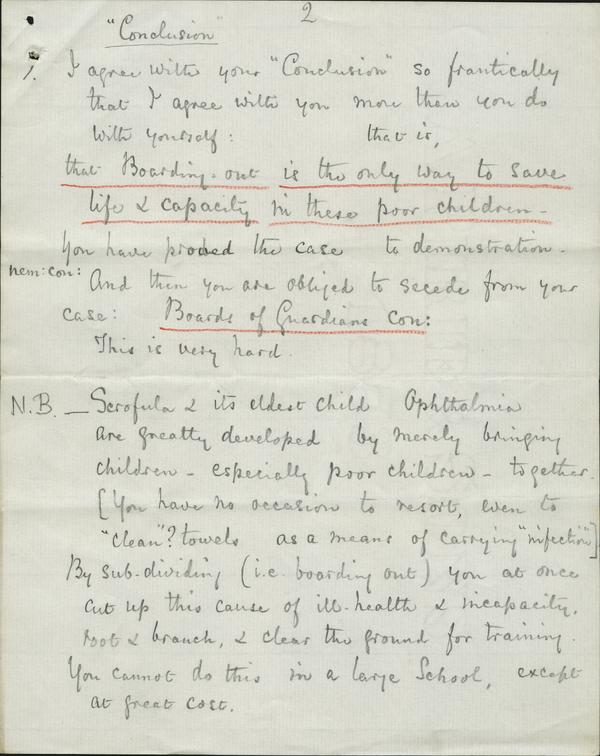 2
"Conclusion"
1. I agree with your "Conclusion" so frantically
that I agree with you more than you do
with yourself: that is,
that Boarding-out is the only way to save
life & capacity in these poor children -
You have proved the case to demonstration -
nem: con: And then you are obliged to secede from your
case: Boards of Guardians con:
This is very hard.
N.B. - Scrofula & its eldest child Ophthalmia
are greatly developed by merely bringing
children - especially poor children - together.
[You have no occasion to resort, even to
"clean"? towels as a means of carrying "infection"]
By sub-dividing (i.e. boarding out) you at once
cut up this cause of ill-health & incapacity,
root & branch, & clear the ground for training.
You cannot do this in a large School, except
at great cost.